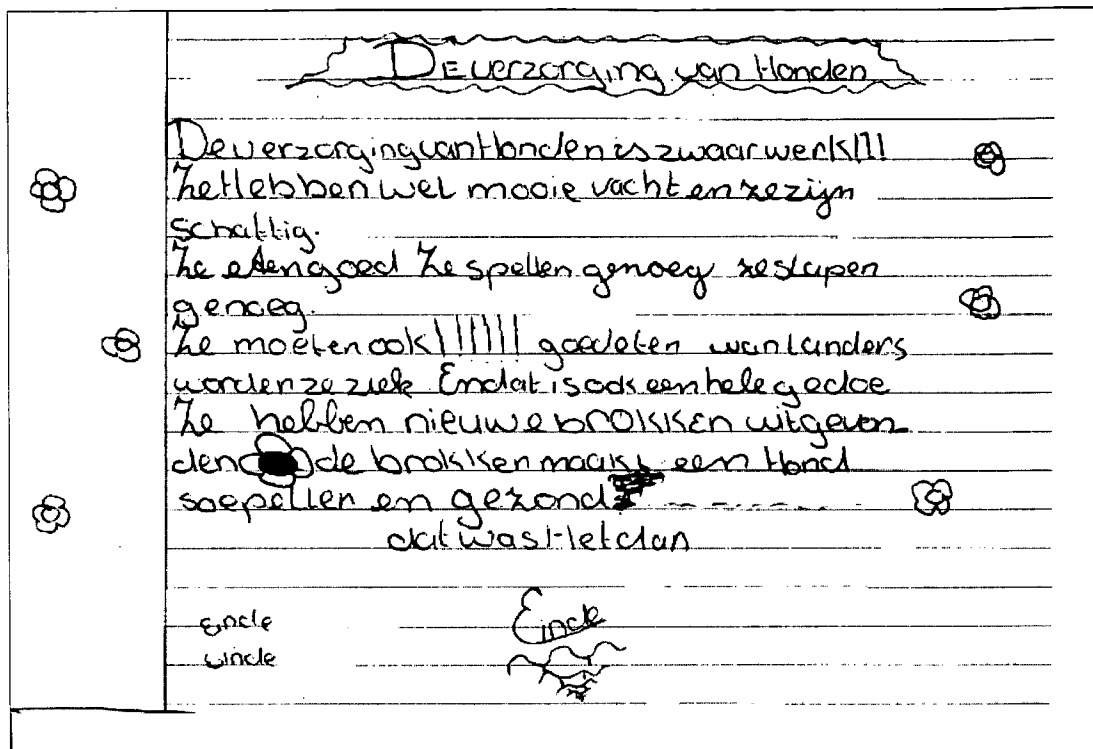 De verzorging van Honden
De verzorging van Honden is zwaar werk!!!
Ze Hebben wel mooie vacht en ze zijn
schattig.
Ze eten goed Ze spellen genoeg ze slapen
genoeg.
Ze moeten ook!!!!!! goed eten want anders
worden ze ziek En dat is ook een hele gedoe
Ze hebben nieuwe brokken uitgevon
den de brokken maakt een Hond
soepeller en gezond
dat was Het dan
Einde
Einde
Einde